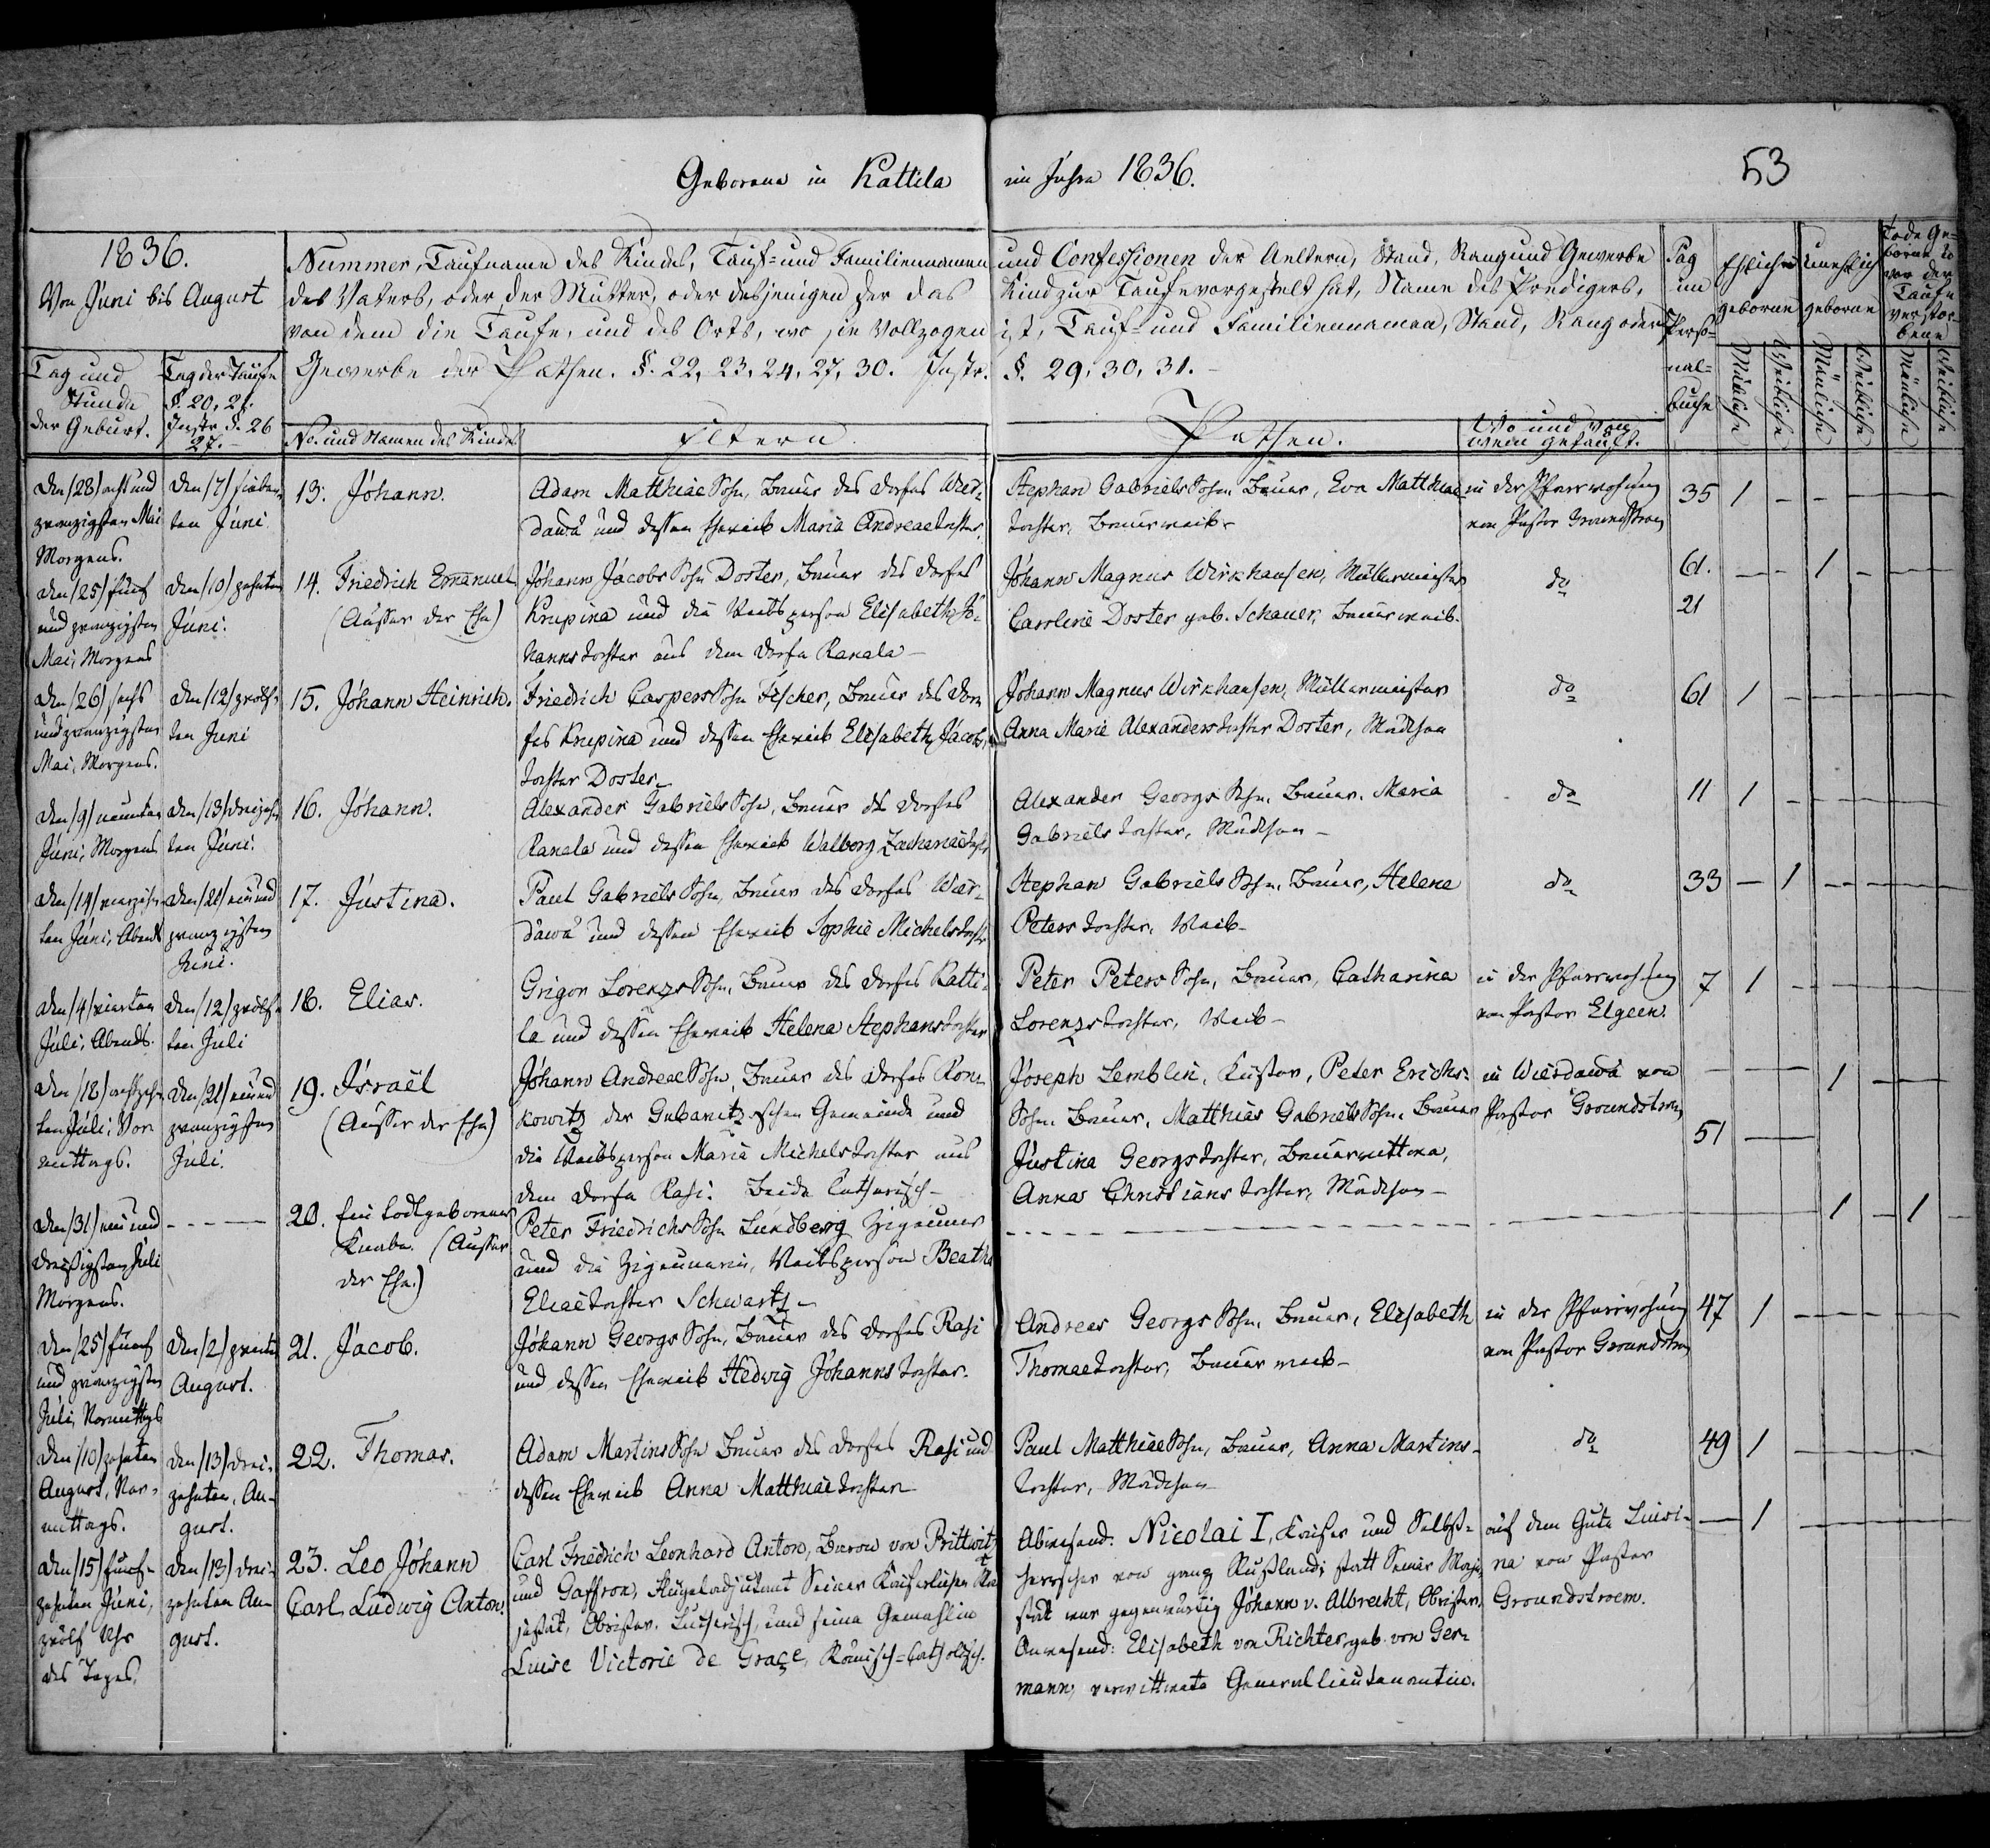 Geborene in Kattila im Jahre 1836.
53
1836.
Von Juni bis August
Nummer, Taufname des Kindes, Tauf- und Familiennamen und Confessionen der Aeltern, Stand, Rang und Gewerbe
des Vaters, oder der Mutter, oder desjenigen der das Kind zur Taufe vorgestelt hat, Name des Predigers,
von dem die Taufe, und des Orts, wo sie vollzogen ist, Tauf- und Familiennamen, Stand, Rang oder
Gewerbe der Pathen. §. 22, 23, 24, 27, 30. Instr. §. 29, 30, 31.
Pag
im
Perso-
nal-
buche
Ehliche
geborne
unehlich
geborne
Tode Ge-
borne u
vor der
Taufe
verstor-
bene
Mänliche
Weibliche
Mänliche
Weibliche
Mänliche
Weibliche
Tag und
Stunde
der Geburt.
Tag der Taufe
§. 20, 21.
Instr. §. 26
27.
No. und Namen des Kindes
Eltern.
Pathen.
Wo und von
wem getauft.
den /28/ acht und
zwanzigsten Mai
Morgens.
den /7/ sieben-
ten Juni
13. Johann.
Adam Matthiae Sohn, Bauer des Dorfes Wer-
dawa und dessen Eheweib Maria Andreaetochter.
Stephan Gabriels Sohn, Bauer, Eva Matthiae-
tochter, Bauerweib
in der Pfarrwohnung
von Pastor Groundstroem
35 1
den /25/ fünf
und zwanzigsten
Mai, Morgens
den /10/ zehnten
Juni.
14. Friedrich Emanuel
(Ausser der Ehe)
Johann Jacobs Sohn Doster, Bauer des Dorfes
Krupina und die Weibsperson Elisabeth Jo-
hannstochter aus dem Dorfe Ranala
Johann Magnus Wirkhausen, Müllermeister
Caroline Doster geb. Schauer, Bauerweib.
do
61.
21
1
den /26/ sechs
und zwanzigsten
Mai, Morgens.
den /12/ zwölf-
ten Juni
15. Johann Heinrich.
Friedrich Caspers Sohn Fischer, Bauer des Dor-
fes Krupina und dessen Eheweib Elisabeth Jacobs-
tochter Doster
Johann Magnus Wirkhausen, Müllermeister
Anna Marie Alexanderstochter Doster, Mädchen
do
61 1
den /9/ neunten
Juni, Morgens
den /13/ dreizehn-
ten Juni.
16. Johann.
Alexander Gabriels Sohn, Bauer des Dorfes
Ranala und dessen Eheweib Walborg Zachariaetochter
Alexander Georgs Sohn, Bauer, Maria
Gabrielstochter, Mädchen
do
11 1
den /14/ vierzehn-
ten Juni, Abends
den /21/ ein und
zwanzigsten
Juni.
17. Justina.
Paul Gabriels Sohn, Bauer des Dorfes Wer-
dawa und dessen Eheweib Sophie Michelstochter
Stephan Gabriels Sohn, Bauer, Helene
Peterstochter, Weib
do
33 1
den /4/ vierten
Juli, Abends.
den /12/ zwölf-
ten Juli
18. Elias.
Grigor Lorenzs Sohn, Bauer des Dorfes Katti-
la und dessen Eheweib Helena Stephanstochter
Peter Peters Sohn, Bauer, Catharina
Lorenzstochter, Weib
in der Pfarrwohnung
von Pastor Elgeen.
7 1
den /18/ achtzehn-
ten Juli, Vor-
mittags.
den /21/ ein und
zwanzigsten
Juli.
19. Israël
(Ausser der Ehe)
Johann Andreae Sohn, Bauer des Dorfes Kon-
kowitz der Gubanitzischen Gemeinde und
die Weibsperson Maria Michelstochter aus
dem Dorfe Rasi. Beide Lutherisch
Joseph Lemblin, Küster, Peter Erichs-
Sohn, Bauer, Matthias Gabriels Sohn, Bauer
Justina Georgstochter, Bauerwittwe,
Anna Christianstochter, Mädchen
in Wierdawa von
Pastor Groundstroem
51 1
den /31/ ein und
dreißigsten Juli
Morgens.
20. Ein todtgeborner
Knabe. (Ausser
der Ehe.)
Peter Friedrichs Sohn Lundberg Zigeuner
und die Zigeunerin, Weibsperson Beatha
Eliaetochter Schwartz
1 1
den /25/ fünf
und zwanzigsten
Juli, Vormittags
den /2/ zweiten
August.
21. Jacob.
Johann Georgs Sohn, Bauer des Dorfes Rasi
und dessen Eheweib Hedwig Johannstochter.
Andreas Georgs Sohn, Bauer, Elisabeth
Thomaetochter, Bauerweib
in der Pfarrwohnung
von Pastor Groundstroem
47 1
den /10/ zehnten
August, Vor-
mittags.
den /13/ drei-
zehnten, Au-
gust.
22. Thomas.
Adam Martins Sohn Bauer des Dorfes Rasi und
dessen Eheweib Anna Matthiaetochter
Paul Matthiae Sohn, Bauer, Anna Martins-
tochter, Mädchen
do
49 1
den /15/ fünf-
zehnten Juni,
zwölf Uhr
des Tages,
den /13/ drei-
zehnten Au-
gust.
23. Leo Johann
Carl Ludwig Anton.
Carl Friedrich Leonhard Anton, Baron von Prittwitz
und Gaffron, Flügeladjutant Seiner Kaiserlichen Ma-
jestät, Obrister, Lutherisch, und seine Gemahlin
Luise Victorie de Grace, Römisch-Catholisch.
Abwesend: Nicolai I, Kaiser und Selbst-
herrscher von ganz Rußland; statt Seiner Maje-
stät war gegenwärtig Johann v. Albrecht, Obrister.
Anwesend: Elisabeth von Richter, geb. von Ger-
mann, verwittwete Generallieutenantin.
auf dem Gute Luisi-
na von Pastor
Groundstroem.
1